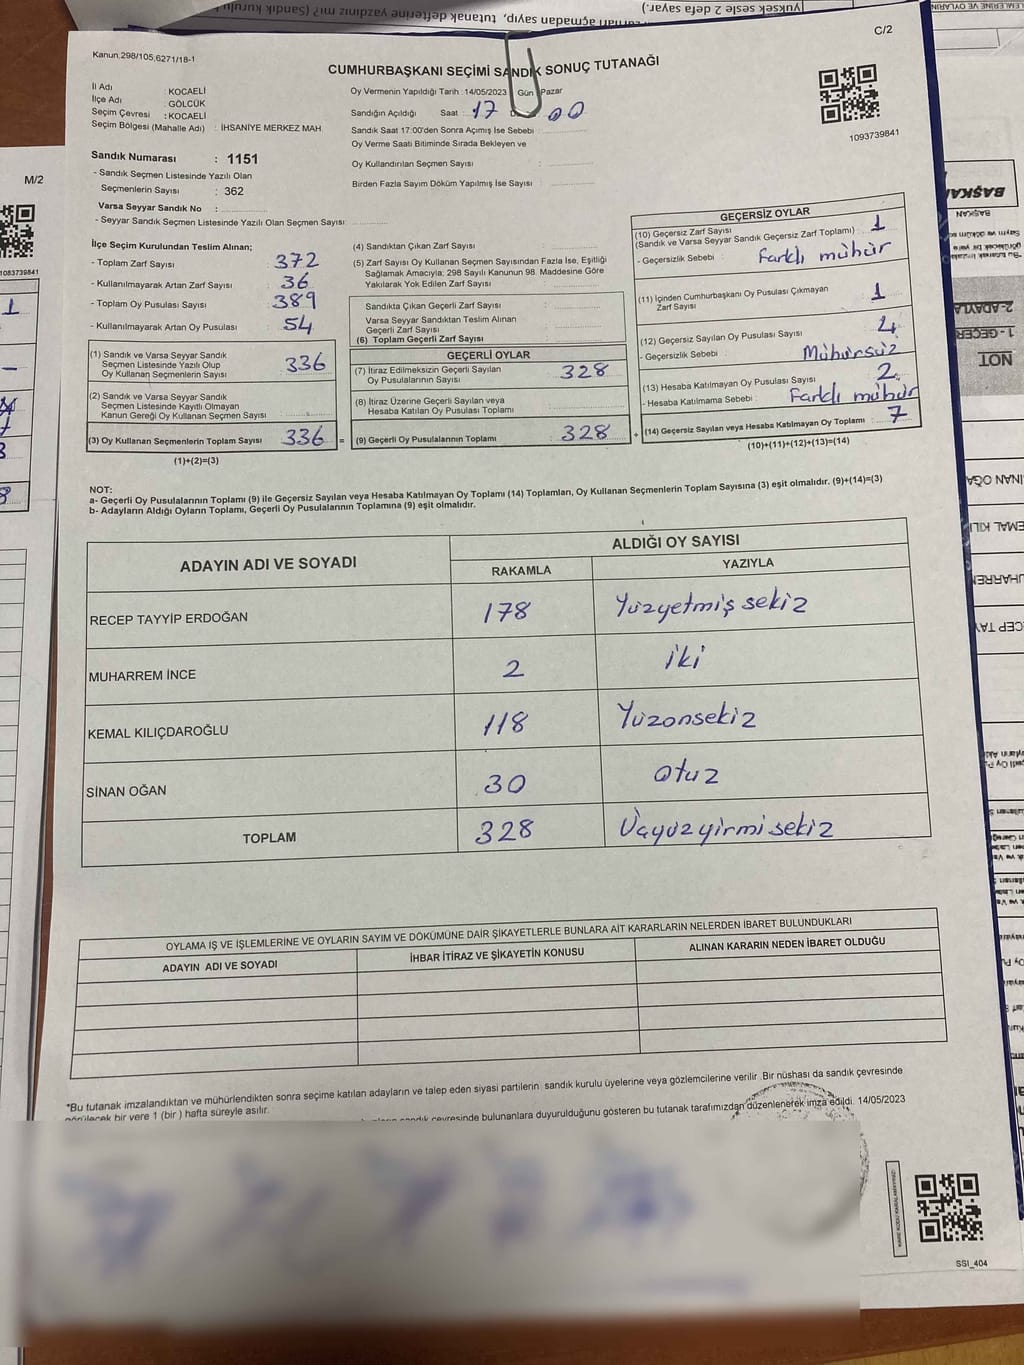 C/2
Kanun.298/105.6271/18-1
CUMHURBAŞKANI SEÇİMİ SANDIK SONUÇ TUTANAĞI
İl Adı : KOCAELİ
İlçe Adı : GÖLCÜK
Seçim Çevresi : KOCAELİ
Seçim Bölgesi (Mahalle Adı) : İHSANİYE MERKEZ MAH.
Oy Vermenin Yapıldığı Tarih :14/05/2023 Gün Pazar
Sandığın Açıldığı Saat : 17 00
Sandık Saat 17:00'den Sonra Açımış İse Sebebi :
Oy Verme Saati Bitiminde Sırada Bekleyen ve
Oy Kullandırılan Seçmen Sayısı :
Birden Fazla Sayım Döküm Yapılmış İse Sayısı :
1093739841
Sandık Numarası : 1151
- Sandık Seçmen Listesinde Yazılı Olan
Seçmenlerin Sayısı : 362
Varsa Seyyar Sandık No :
- Seyyar Sandık Seçmen Listesinde Yazılı Olan Seçmen Sayısı:
İlçe Seçim Kurulundan Teslim Alınan;
- Toplam Zarf Sayısı : 372
- Kullanılmayarak Artan Zarf Sayısı : 36
- Toplam Oy Pusulası Sayısı : 389
- Kullanılmayarak Artan Oy Pusulası : 54
(1) Sandık ve Varsa Seyyar Sandık
Seçmen Listesinde Yazılı Olup
Oy Kullanan Seçmenlerin Sayısı : 336
(2) Sandık ve Varsa Seyyar Sandık
Seçmen Listesinde Kayıtlı Olmayan
Kanun Gereği Oy Kullanan Seçmen Sayısı :
(3) Oy Kullanan Seçmenlerin Toplam Sayısı : 336 =
(1)+(2)=(3)
(4) Sandıktan Çıkan Zarf Sayısı :
(5) Zarf Sayısı Oy Kullanan Seçmen Sayısından Fazla İse, Eşitliği
Sağlamak Amacıyla; 298 Sayılı Kanunun 98. Maddesine Göre
Yakılarak Yok Edilen Zarf Sayısı :
Sandıkta Çıkan Geçerli Zarf Sayısı :
Varsa Seyyar Sandıktan Teslim Alınan
Geçerli Zarf Sayısı :
(6) Toplam Geçerli Zarf Sayısı :
GEÇERLİ OYLAR
(7) İtiraz Edilmeksizin Geçerli Sayılan
Oy Pusulalarının Sayısı : 328
(8) İtiraz Üzerine Geçerli Sayılan veya
Hesaba Katılan Oy Pusulası Toplamı :
(9) Geçerli Oy Pusulalarının Toplamı : 328 +
GEÇERSİZ OYLAR
(10) Geçersiz Zarf Sayısı : 1
(Sandık ve Varsa Seyyar Sandık Geçersiz Zarf Toplamı)
- Geçersizlik Sebebi : Farklı mühür
(11) İçinden Cumhurbaşkanı Oy Pusulası Çıkmayan
Zarf Sayısı : 1
(12) Geçersiz Sayılan Oy Pusulası Sayısı :
- Geçersizlik Sebebi : Mühürsüz
(13) Hesaba Katılmayan Oy Pusulası Sayısı : 2
- Hesaba Katılmama Sebebi : Farklı mühür
(14) Geçersiz Sayılan veya Hesaba Katılmayan Oy Toplamı : 7
(10)+(11)+(12)+(13)=(14)
NOT:
a- Geçerli Oy Pusulalarının Toplamı (9) ile Geçersiz Sayılan veya Hesaba Katılmayan Oy Toplamı (14) Toplamları, Oy Kullanan Seçmenlerin Toplam Sayısına (3) eşit olmalıdır. (9)+(14)=(3)
b- Adayların Aldığı Oyların Toplamı, Geçerli Oy Pusulalarının Toplamına (9) eşit olmalıdır.
ADAYIN ADI VE SOYADI
ALDIĞI OY SAYISI
RAKAMLA YAZIYLA
RECEP TAYYİP ERDOĞAN 178 Yüzyetmiş sekiz
MUHARREM İNCE 2 iki
KEMAL KILIÇDAROĞLU 118 Yüzonsekiz
SİNAN OĞAN 30 otuz
TOPLAM 328 Üçyüzyirmisekiz
OYLAMA İŞ VE İŞLEMLERİNE VE OYLARIN SAYIM VE DÖKÜMÜNE DAİR ŞİKAYETLERLE BUNLARA AİT KARARLARIN NELERDEN İBARET BULUNDUKLARI
ADAYIN ADI VE SOYADI İHBAR İTİRAZ VE ŞİKAYETİN KONUSU ALINAN KARARIN NEDEN İBARET OLDUĞU
*Bu tutanak imzalandıktan ve mühürlendikten sonra seçime katılan adayların ve talep eden siyasi partilerin sandık kurulu üyelerine veya gözlemcilerine verilir .Bir nüshası da sandık çevresinde
görülecek bir yere 1 (bir ) hafta süreyle asılır.
sandık çevresinde bulunanlara duyurulduğunu gösteren bu tutanak tarafımızdan düzenlenerek imza edildi. 14/05/2023
SSI_404
M/2
1083739841